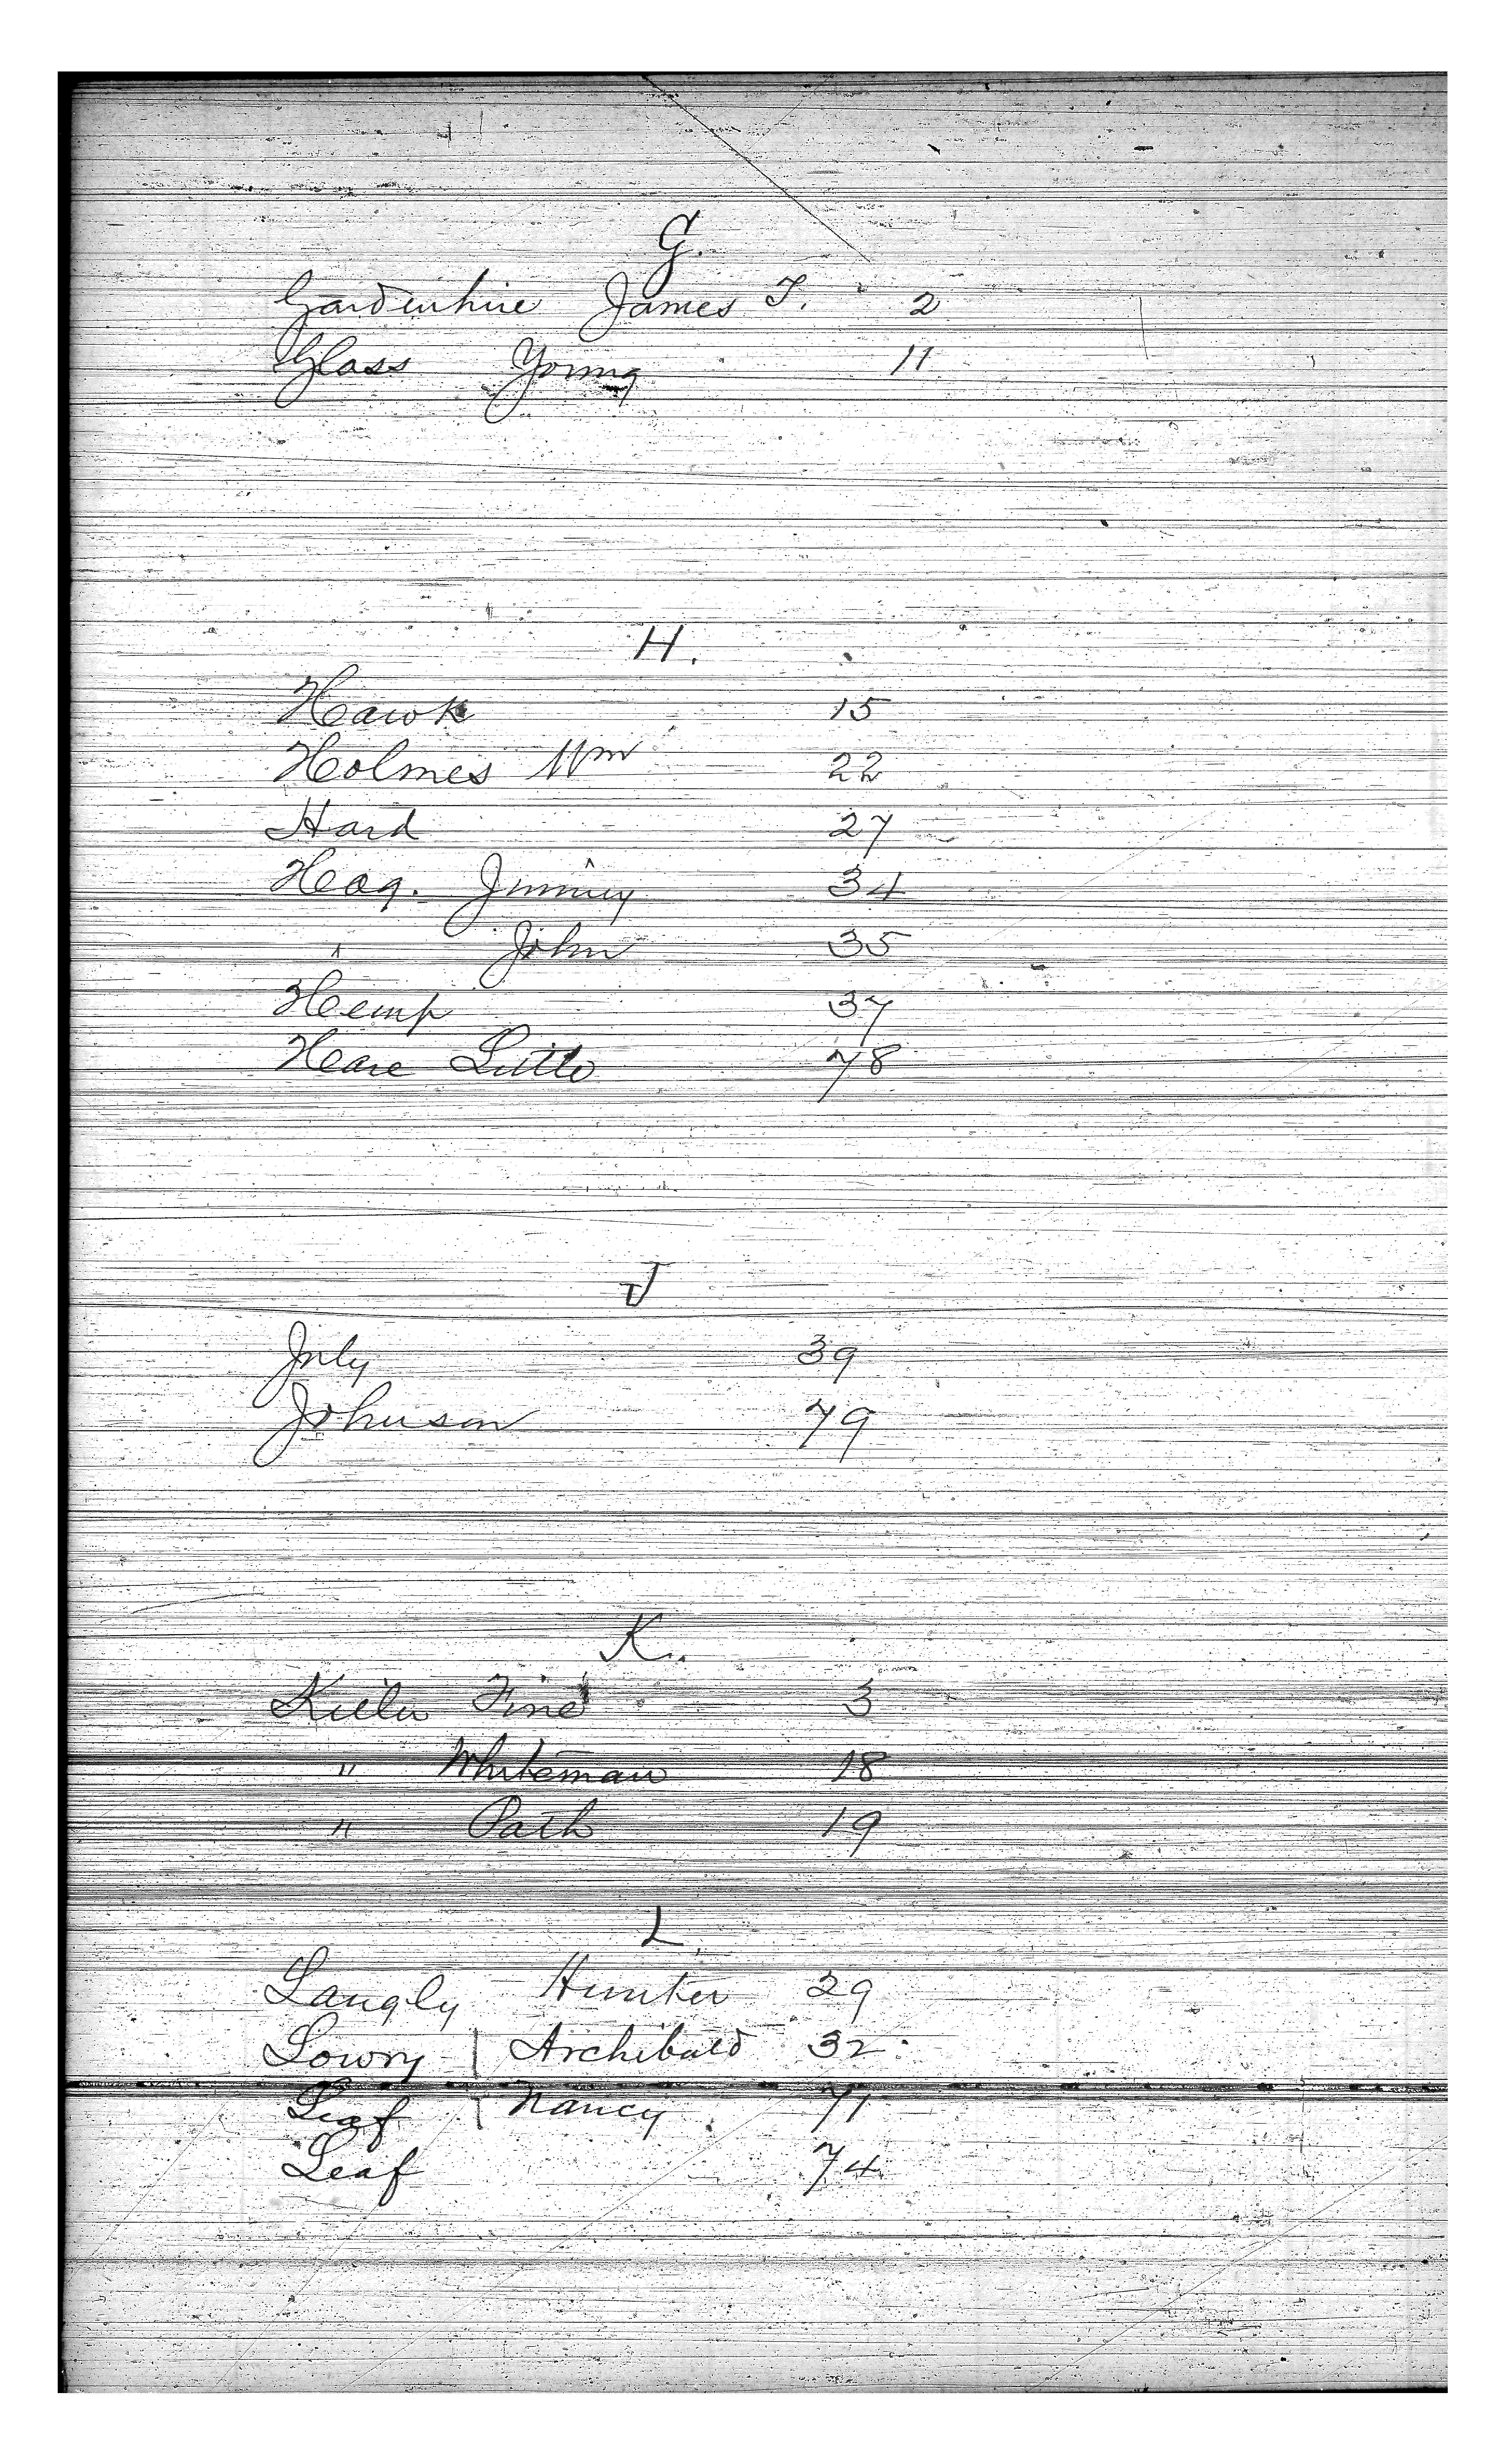 G.
Gardenhire James T. 2
Glass Young 11
H.
Hawk 15
Holmes Wm 22
Hard 27
Heag. Jimmy 34
" John 35
Hemp 37
Hare Little 78
J
July 39
Johnson 79
K.
Killer Fine 3
" Whiteman 18
" Path 19
L
Langly Hunter 29
Lowry Archibald 32
Leaf Nancy 71
Leaf 74